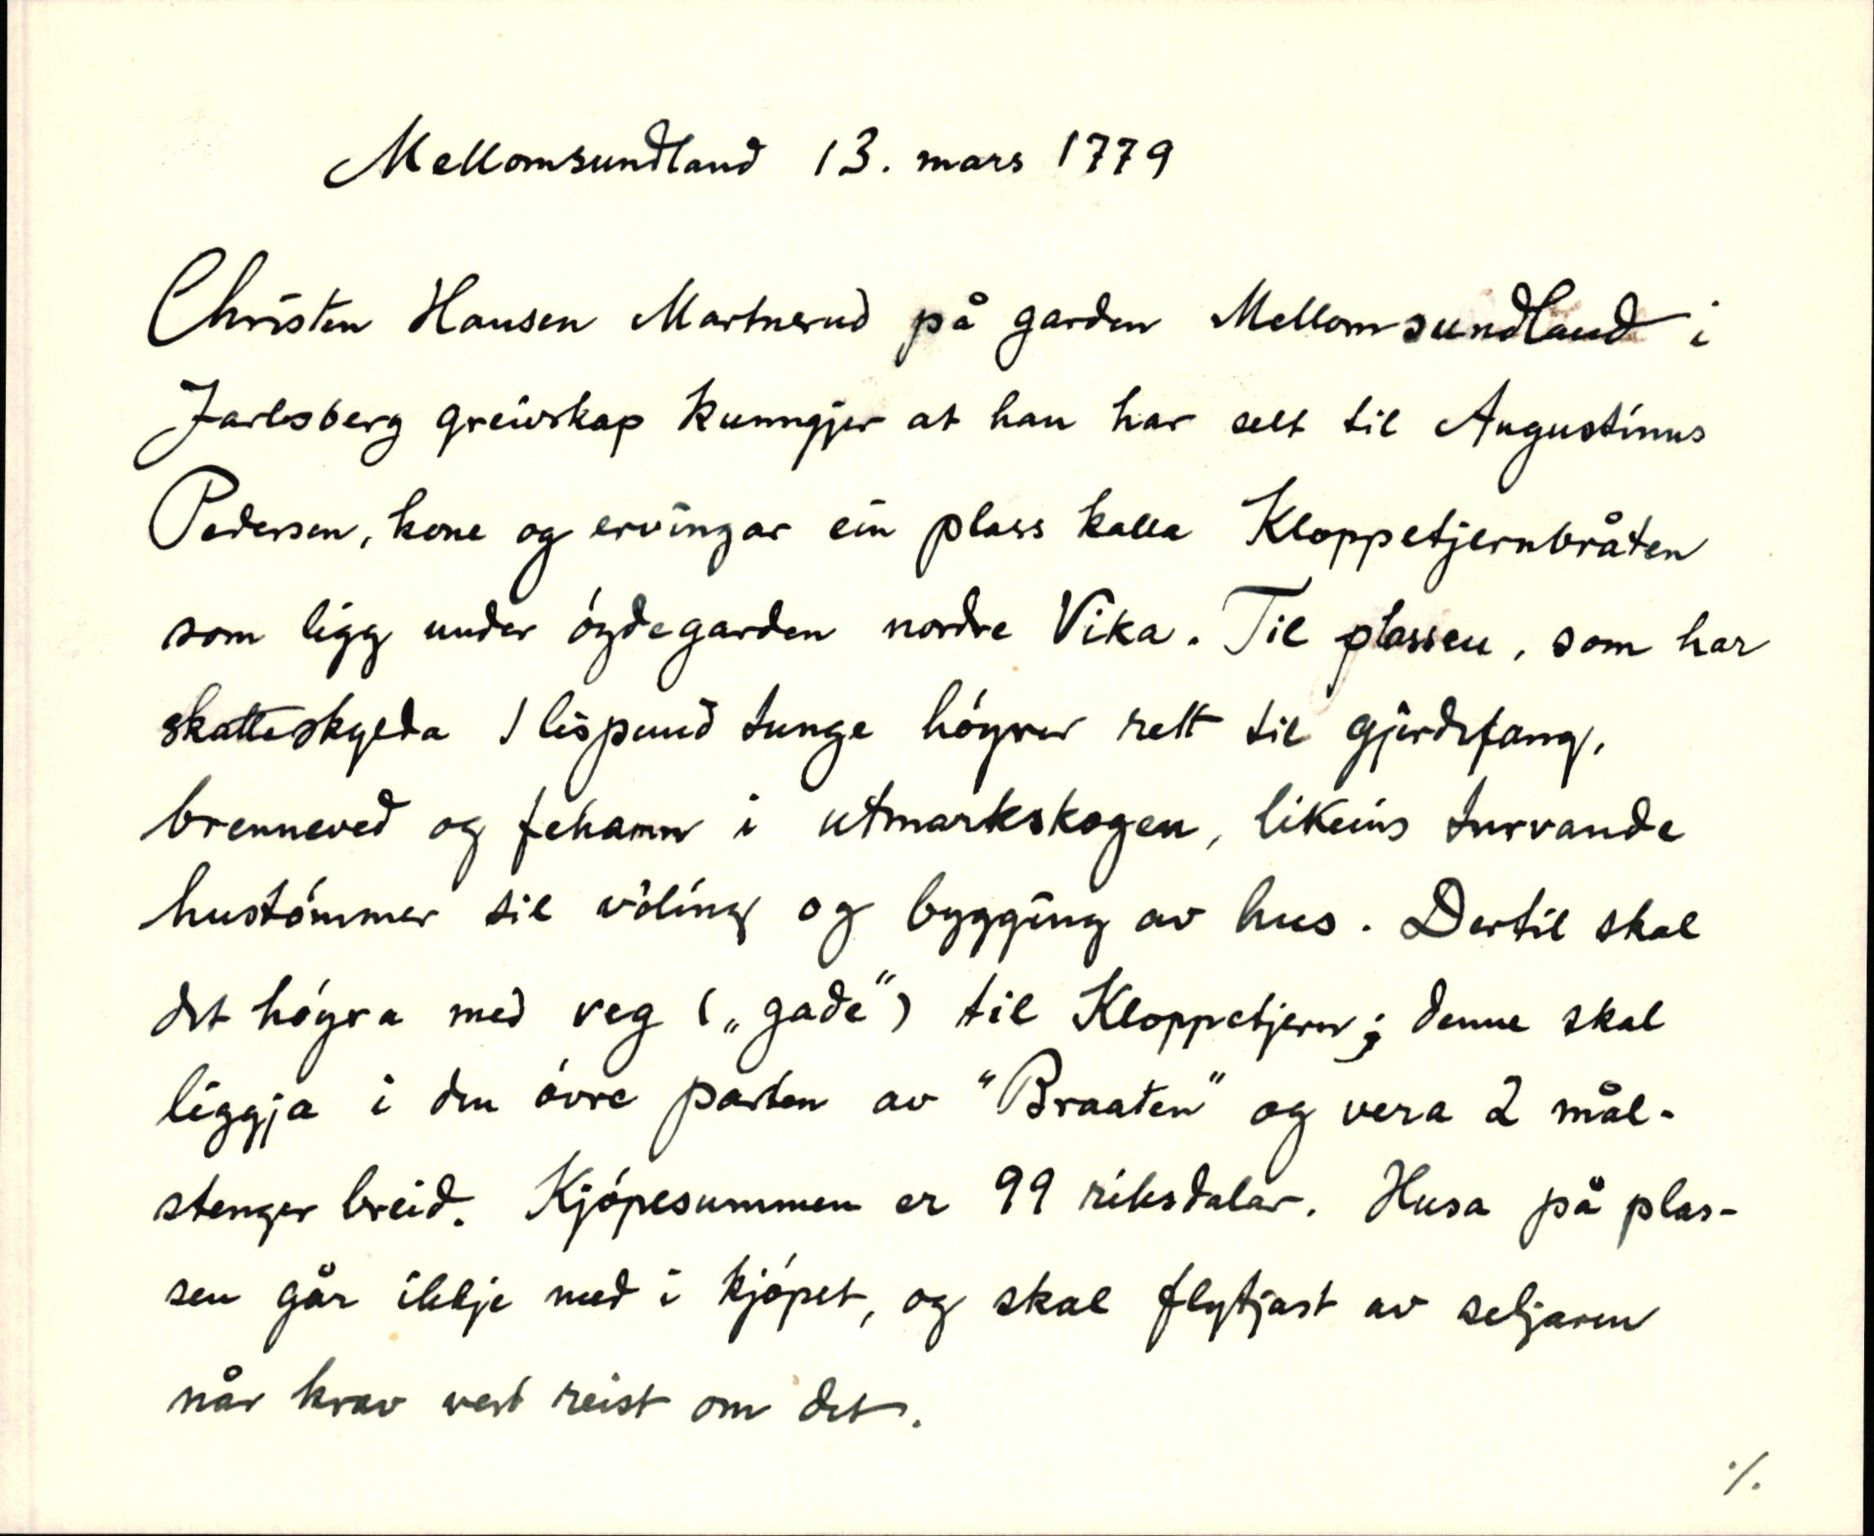 Mellomsundland 13. mars 1779
Christen Hansen Martnerud på garden Mellomsundland i
Jarlsberg greivskap kunngjer at han har selt til Augustinus
Pedersen, kone og ervingar ein plass kalla Kloppetjernbråten
som ligg under óydegarden nordre Vika. Til plassen, som har
skatteskylda 1 lispund tunge hóyrer rett til gjerdefang,
brenneved og fehamn i utmarkskogen, likeins turvande
hustómmer til vóling og bygging av hus. Dertil skal
det hóyra med veg („gade") til Kloppetjern; denne skal
liggja i den óvre parten av "Braaten" og vera 2 mål-
stenger breid. Kjópesummen er 99 riksdalar. Husa på plas-
sen går ikkje med i kjópet, og skal flytjast av seljaren
når krav vert reist om det.
./.